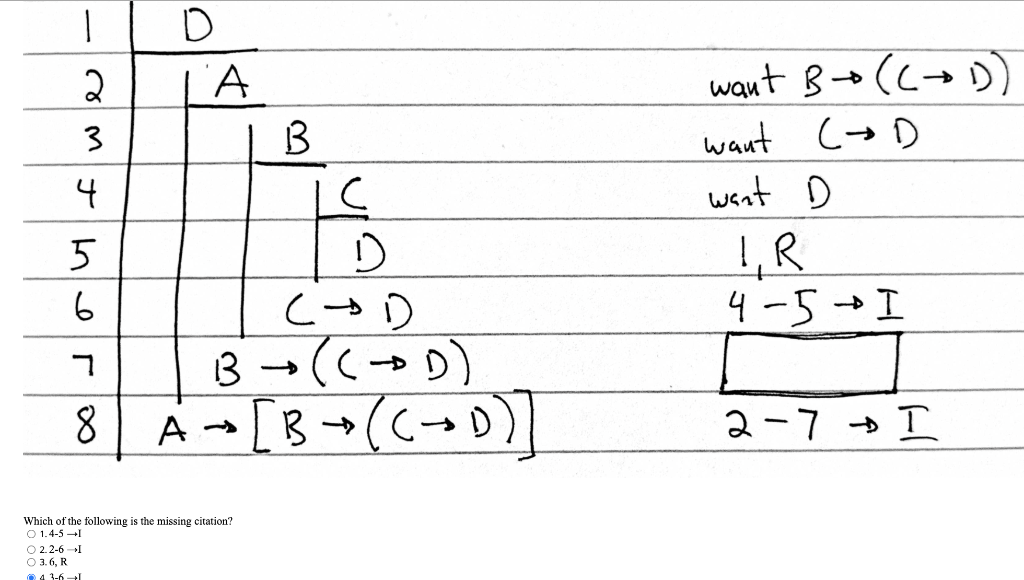 1 D
2 A want B → (C → D)
3 B want C → D
4 C want D
5 D 1, R
6 C → D 4 – 5 → I
7 B → (C → D)
8 A → [B → (C → D)] 2 – 7 → I
Which of the following is the missing citation?
1. 4-5 →I
2. 2-6 →I
3. 6, R
4. 3-6 →I